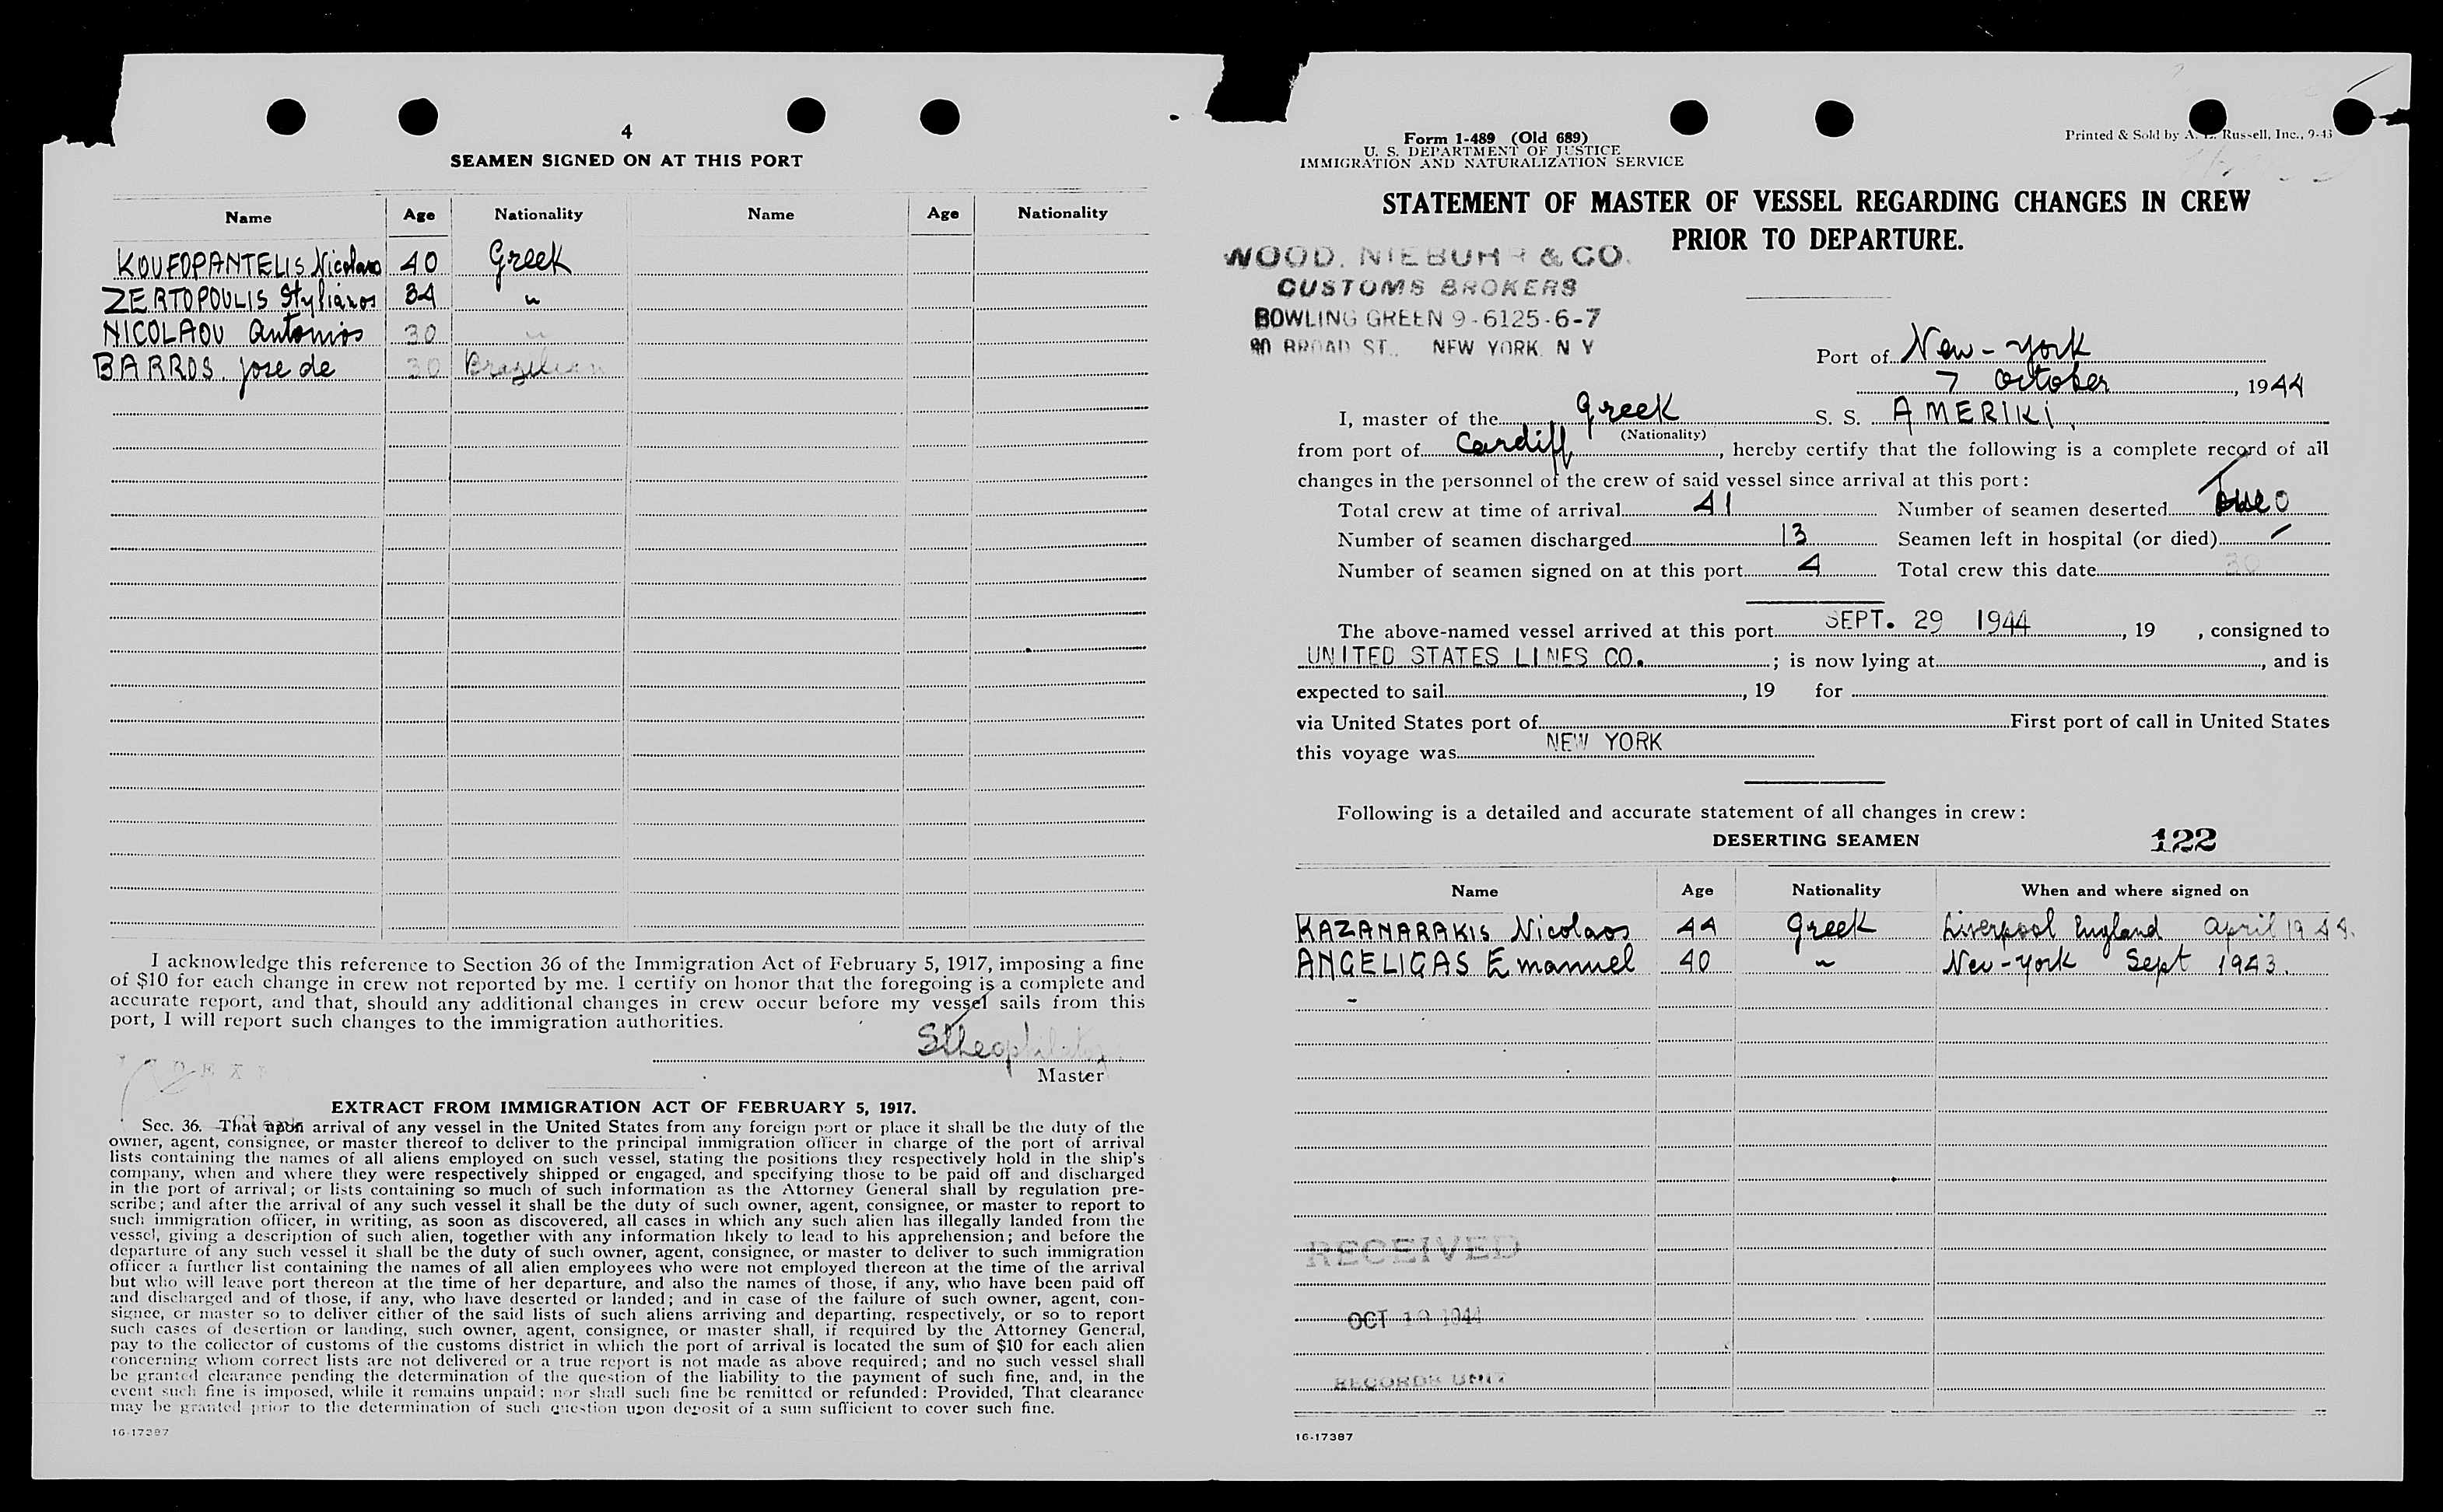 4
SEAMEN SIGNED ON AT THIS PORT
Name Age Nationality Name Age Nationality
KOUFOPANTELIS Nicolaos 40 Greek
ZERTOPOULIS Stylianos 34 "
NICOLAOU Antonios 30 "
BARROS. Jose de 30 Brazilian
I acknowledge this reference to Section 36 of the Immigration Act of February 5, 1917, imposing a fine
of $10 for each change in crew not reported by me. I certify on honor that the foregoing is a complete and
accurate report, and that, should any additional changes in crew occur before my vessel sails from this
port, I will report such changes to the immigration authorities.
Master
EXTRACT FROM IMMIGRATION ACT OF FEBRUARY 5, 1917.
Sec. 36. That upon arrival of any vessel in the United States from any foreign port or place it shall be the duty of the
owner, agent, consignee, or master thereof to deliver to the principal immigration officer in charge of the port of arrival
lists containing the names of all aliens employed on such vessel, stating the positions they respectively hold in the ship's
company, when and where they were respectively shipped or engaged, and specifying those to be paid off and discharged
in the port of arrival; or lists containing so much of such information as the Attorney General shall by regulation pre-
scribe; and after the arrival of any such vessel it shall be the duty of such owner, agent, consignee, or master to report to
such immigration officer, in writing, as soon as discovered, all cases in which any such alien has illegally landed from the
vessel, giving a description of such alien, together with any information likely to lead to his apprehension; and before the
departure of any such vessel it shall be the duty of such owner, agent, consignee, or master to deliver to such immigration
officer a further list containing the names of all alien employees who were not employed thereon at the time of the arrival
but who will leave port thereon at the time of her departure, and also the names of those, if any, who have been paid off
and discharged and of those, if any, who have deserted or landed; and in case of the failure of such owner, agent, con-
signee, or master so to deliver either of the said lists of such aliens arriving and departing, respectively, or so to report
such cases of desertion or landing, such owner, agent, consignee, or master shall, if required by the Attorney General,
pay to the collector of customs of the customs district in which the port of arrival is located the sum of $10 for each alien
concerning whom correct lists are not delivered or a true report is not made as above required; and no such vessel shall
be granted clearance pending the determination of the question of the liability to the payment of such fine, and, in the
event such fine is imposed, while it remains unpaid; nor shall such fine be remitted or refunded: Provided, That clearance
may be granted prior to the determination of such question upon deposit of a sum sufficient to cover such fine.
16-17387
Form I-489 (Old 689)
U. S. DEPARTMENT OF JUSTICE
IMMIGRATION AND NATURALIZATION SERVICE
Printed & Sold by A. Russell, Inc., 9-43
STATEMENT OF MASTER OF VESSEL REGARDING CHANGES IN CREW
PRIOR TO DEPARTURE.
WOOD, NIEBUHR & CO.
CUSTOMS BROKERS
BOWLING GREEN 9-6125-6-7
80 BROAD ST., NEW YORK, N Y
Port of New-York
7 October, 1944
I, master of the Greek S. S. AMERIKI
(Nationality)
from port of Cardiff, hereby certify that the following is a complete record of all
changes in the personnel of the crew of said vessel since arrival at this port:
Total crew at time of arrival 41 Number of seamen deserted
Number of seamen discharged 13 Seamen left in hospital (or died) —
Number of seamen signed on at this port 4 Total crew this date 30
The above-named vessel arrived at this port SEPT. 29 1944, 19 , consigned to
UNITED STATES LINES CO.; is now lying at , and is
expected to sail , 19 for
via United States port of First port of call in United States
this voyage was NEW YORK
Following is a detailed and accurate statement of all changes in crew:
DESERTING SEAMEN 122
Name Age Nationality When and where signed on
KAZANARAKIS Nicolaos 44 Greek Liverpool England April 1944.
ANGELIGAS Emanuel 40 " New-York Sept 1943.
RECEIVED
OCT 19 1944
RECORDS UNIT
16-17387